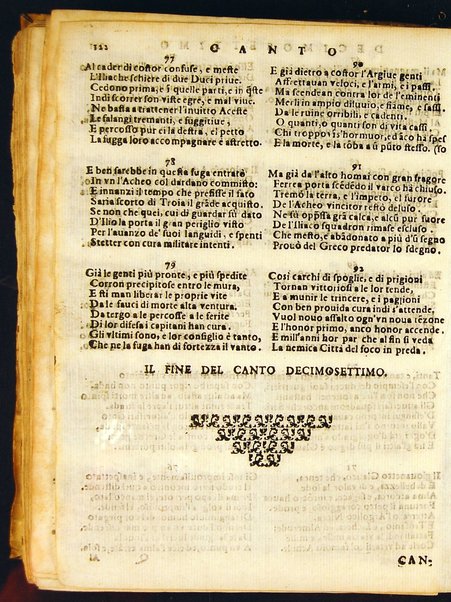 122 CANTO
77
Al cader di costor confuse, e meste
L'Iliache schiere di due Duci priue,
Cedono prima; e i quelle parti, e in q̃ste
Indi scorrer son viste egre, e mal viue.
Ne basta a trattener l'inuitto Aceste
Le falangi tremanti, e fuggitiue,
E percosso pur ci la destra, el petto
La fugga loro accompagnare è astretto.
78
E ben sarebbe in questa fuga entrato
In vn l'Acheo col dardano commisto;
E innanzi il tempo che prefisse il fato
Saria scorto di Troia il grãde acquisto.
Se non che quei, cui di guardar fu dato
D'Ilio la porta il gran periglio visto
Per l'auanzo de' suoi languidi, e spenti
Stetter con cura militare intenti.
79
Già le genti più pronte, e più spedite
Corron precipitose entro le mura,
E sti man liberar le proprie vite
Da le fauci di morte alta ventura.
Da tergo a le percosse a le ferite
Di lor difesa i capitani han cura.
Gli vltimi sono, e lor consiglio è tanto,
Che ne la fuga han di fortezza il vanto.
90
E già dietro a costor l'Argiue genti
Affrettauan veloci, e l'armi, e i passi.
Ma scendean contra lor de l'eminenti
Merli in ampio diluuio, e fiãme, e sassi.
Da le ruine orribili, e cadenti.
O quanti, o quanti son di vita cassi,
Chi troppo v'is'hormuor, ed àco hà spes
E la morte, e la tõba a ũ pũto stesso. (so
91
Ma già da l'alto homai con gran fragore
Ferrea porta scẽdẽdo il varco hà chiuso.
Tremò la terra, e l'impeto, el furore
De l'Acheo vincitor restò deluso.
Ne sù oppssa grà calca, e alcũ pur fuore
De l'Iliaco squadron rimase escluso.
Che mesto, e abãdonato a piú d'ũ segno
Prouò del Greco predator lo sdegno.
92
Cosi carchi di spoglie, e di prigioni
Tornan vittoriosi a le lor tende,
E a munir le trincere, e i paglioni
Con ben prouida cura indi s'attende,
Vuol nouo assalto ogn'vn noua tẽzone
E l'honor primo, anco honor accende.
E mill'anni hor par che al fin si veda
La nemica Città del foco in preda.
IL FINE DEL CANTO DECIMOSETTIMO.
CAN-